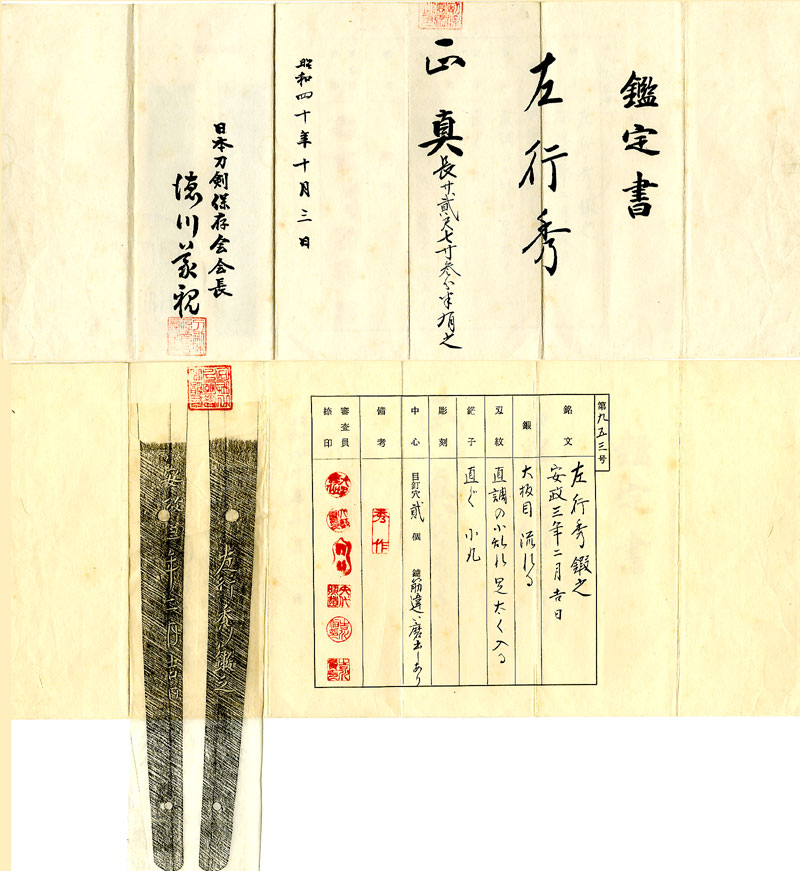 鑑定書
左行秀
正真
長サ貳尺七寸参分半有之
昭和四十年十月三日
日本刀剣保存会会長
徳川義親
第九五三号
銘文
左行秀鍛之
安政三年二月吉日
鍛
大板目 流れる
刃紋
直調の小乱れ 足太く入る
鋩子
直ぐ 小丸
彫刻
中心
目釘穴 貳 個 鑢 筋違い磨出しあり
備考
秀作
審査員
捺印
左行秀鍛之
安政三年二月吉日